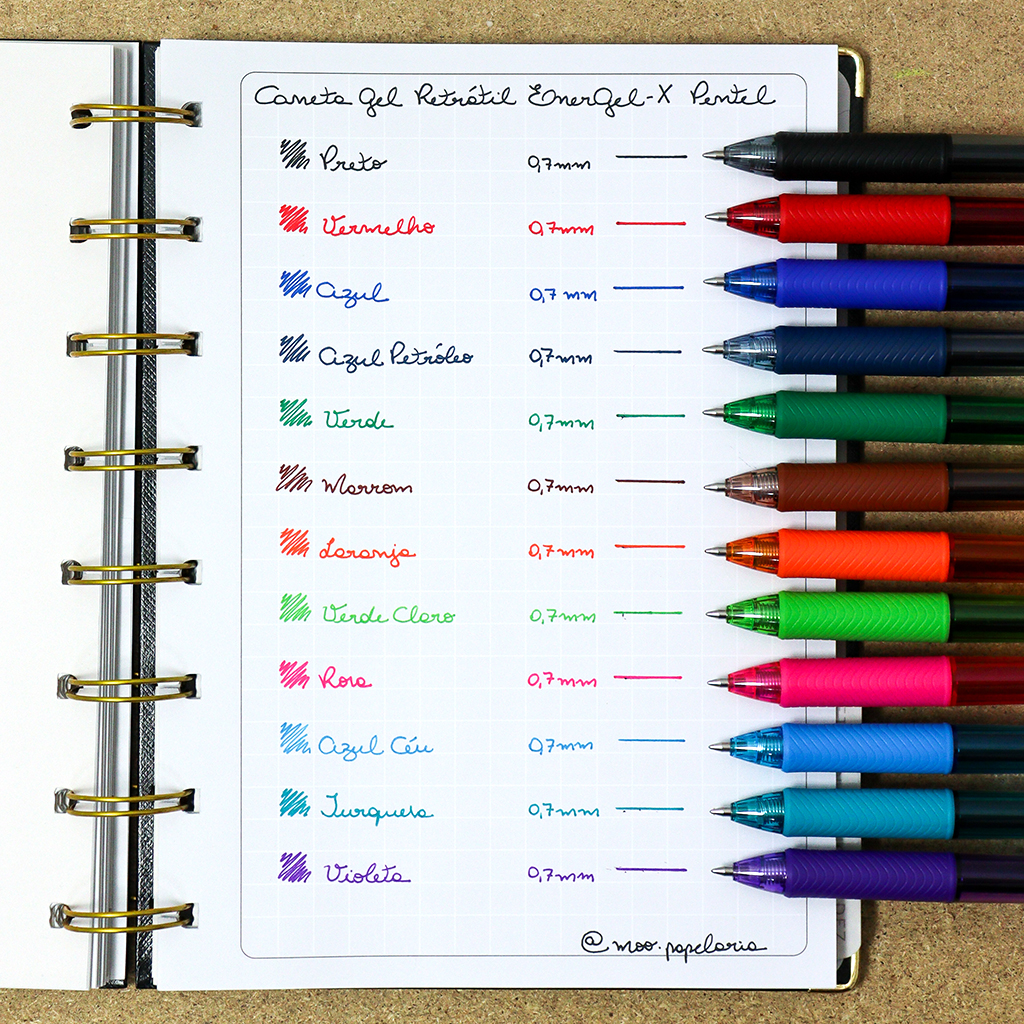 Caneta Gel Retrátil EnerGel-X Pentel
Preto 0,7mm
Vermelho 0,7mm
Azul 0,7mm
Azul Petróleo 0,7mm
Verde 0,7mm
Marrom 0,7mm
Laranja 0,7mm
Verde Claro 0,7mm
Rosa 0,7mm
Azul Céu 0,7mm
Turquesa 0,7mm
Violeta 0,7mm
@moo.papelaria